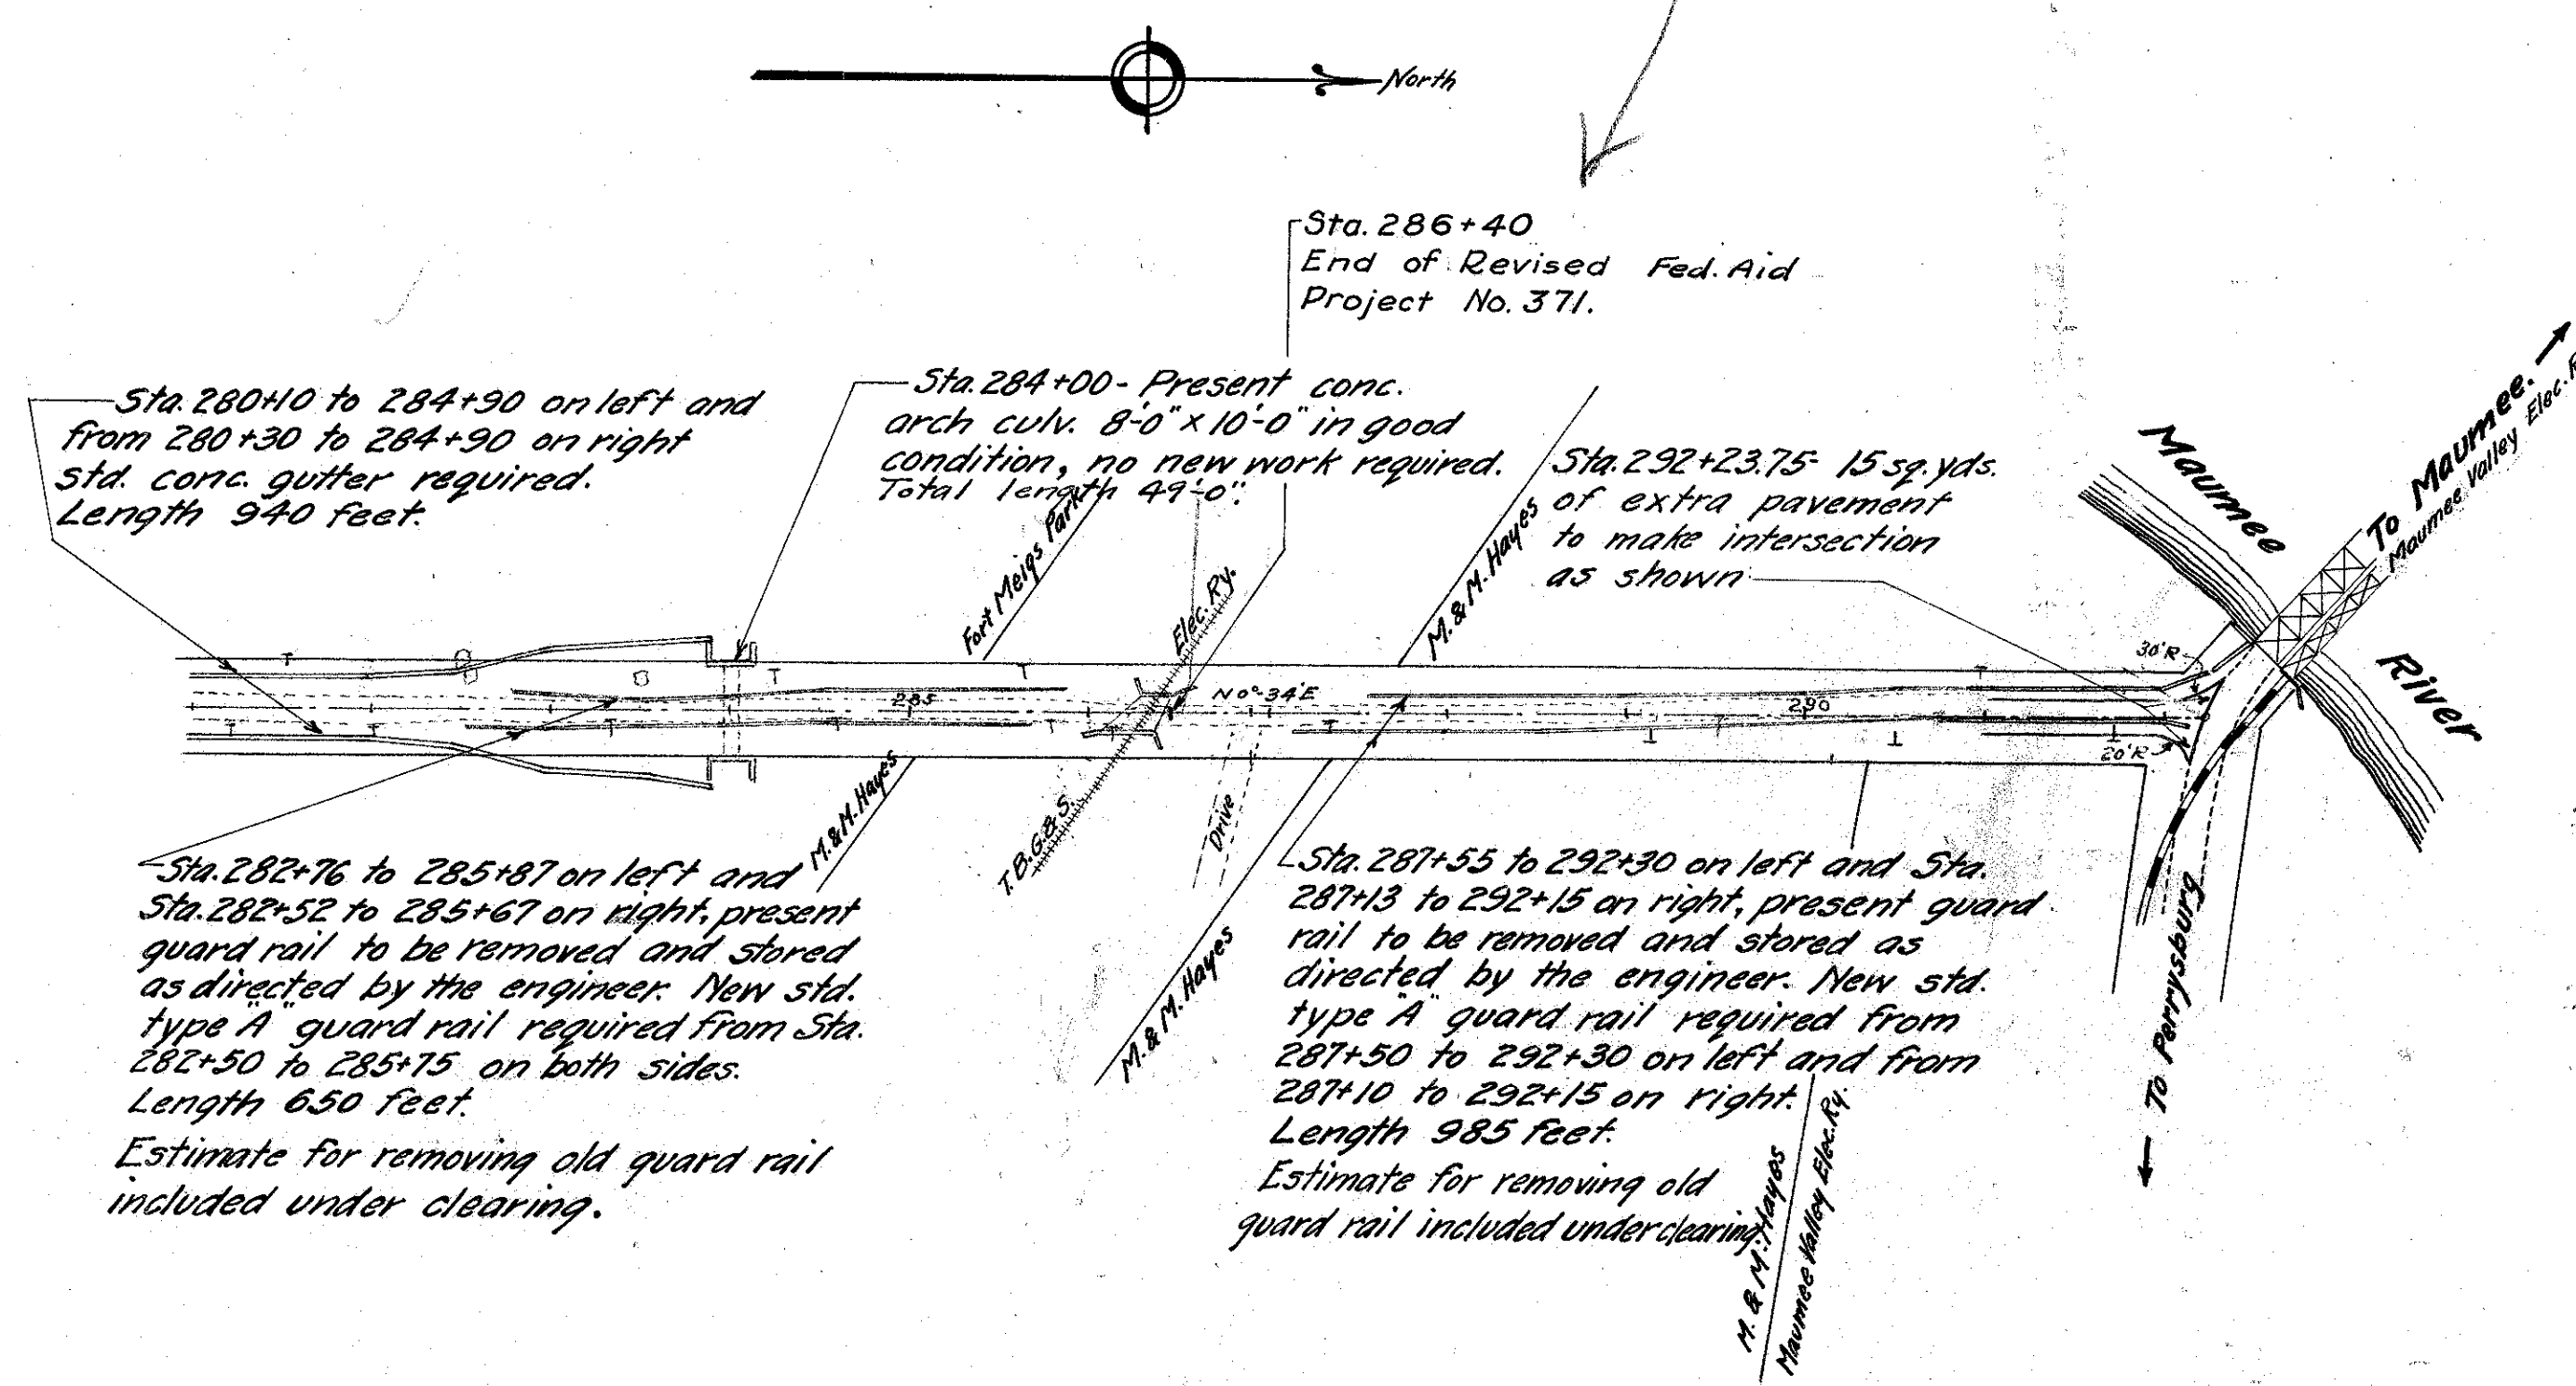 North
Sta. 286+40
End of Revised Fed. Aid
Project No. 371.
Sta. 280+10 to 284+90 on left and
from 280+30 to 284+90 on right
std. conc. gutter required.
Length 940 feet.
Sta. 284+00 - Present conc.
arch culv. 8'-0" x 10'-0" in good
condition, no new work required.
Total length 49'-0".
Sta. 292+23.75 - 15 sq. yds.
of extra pavement
to make intersection
as shown
Fort Meigs Park
Elec. Ry.
M. & M. Hayes
Maumee
River
To Maumee.
Maumee Valley Elec. R
30'R
285
N 0°-34'E
290
20'R
M. & M. Hayes
T.B.G.& S.
Drive
M. & M. Hayes
To Perrysburg
Sta. 282+76 to 285+87 on left and
Sta. 282+52 to 285+67 on right, present
guard rail to be removed and stored
as directed by the engineer. New std.
type "A" guard rail required from Sta.
282+50 to 285+75 on both sides.
Length 650 feet.
Estimate for removing old guard rail
included under clearing.
Sta. 287+55 to 292+30 on left and Sta.
287+13 to 292+15 on right, present guard
rail to be removed and stored as
directed by the engineer. New std.
type "A" guard rail required from
287+50 to 292+30 on left and from
287+10 to 292+15 on right.
Length 985 feet.
Estimate for removing old
guard rail included under clearing
M. & M. Hayes
Maumee Valley Elec. Ry.